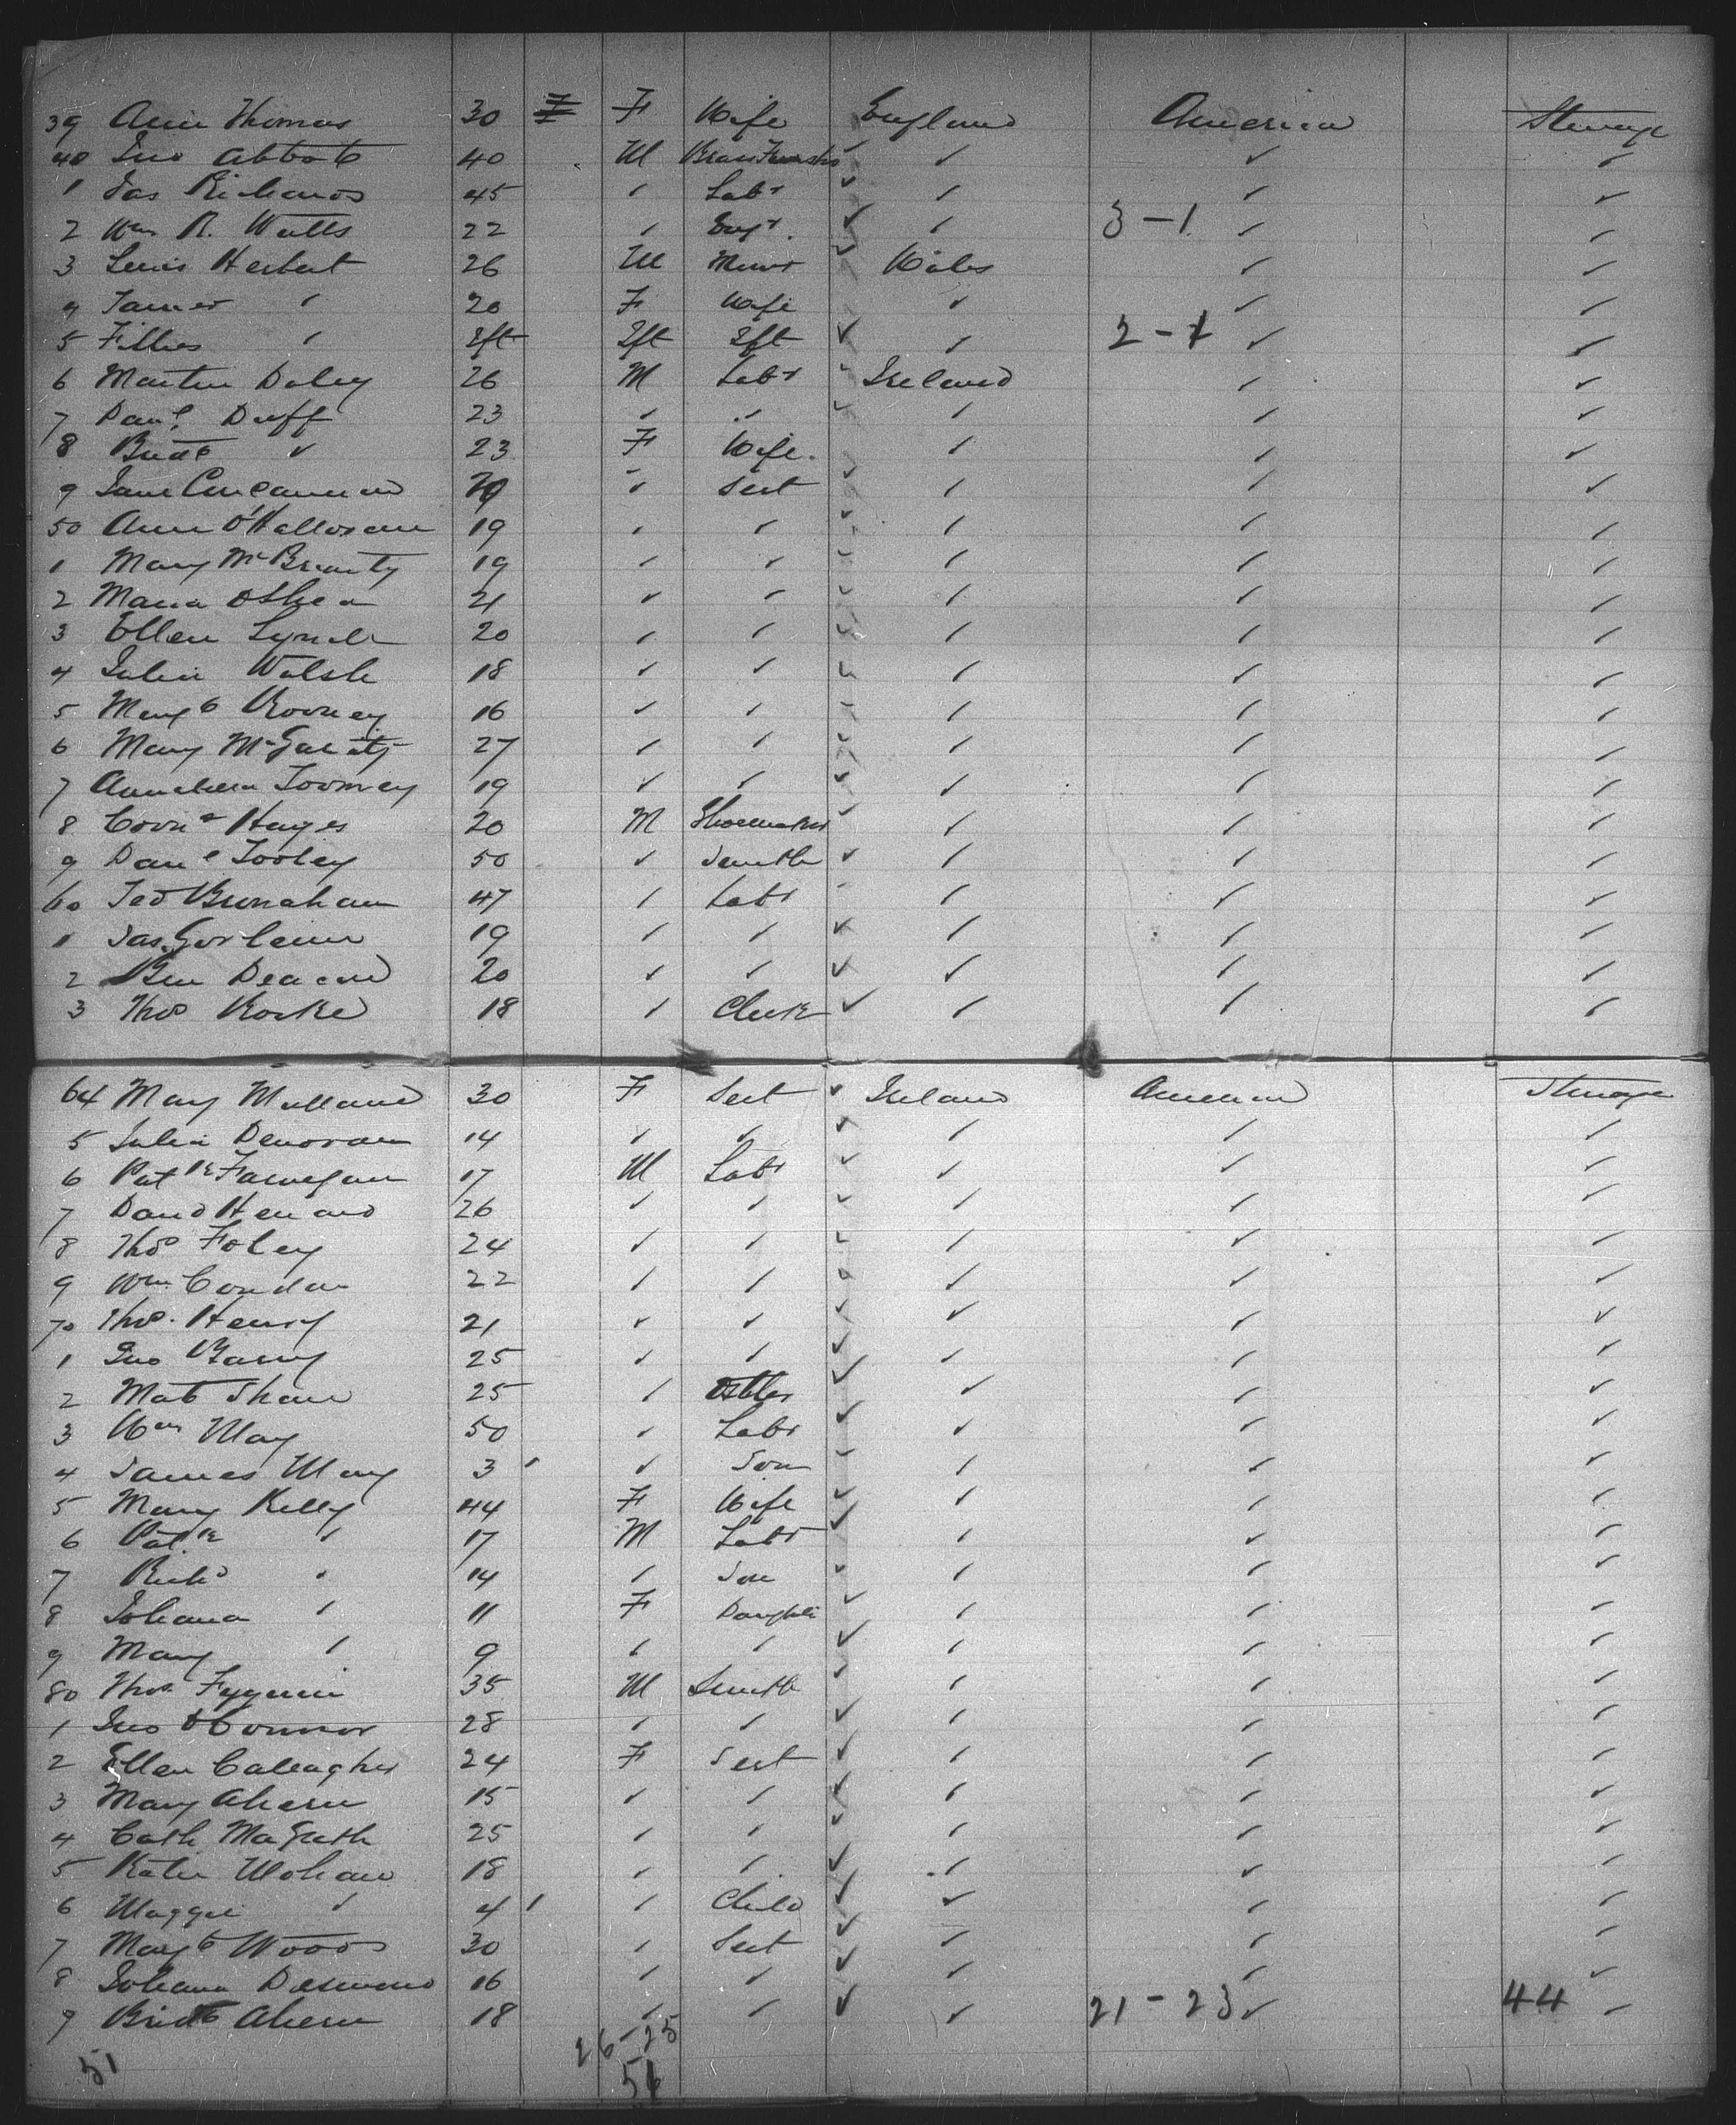 39 Ann Thomas 30 F F Wife England America Steerage
40 Jno Abbott 40 M Brass Finisher ✓ ✓ ✓
1 Jas Richards 45 ✓ Labr ✓ ✓ ✓
2 Wm R. Watts 22 ✓ Engr. ✓ 3-1 ✓ ✓
3 Lewis Herbert 26 M Minr Wales ✓ ✓
4 James ✓ 20 F Wife ✓ ✓ ✓
5 ✓ Ift Ift Ift ✓ 2-1 ✓ ✓
6 Martin Daley 26 M Labr Ireland ✓ ✓
7 Danl. Duff 23 ✓ ✓ ✓ ✓ ✓
8 Bridt ✓ 23 F Wife. ✓ ✓ ✓
9 Jane Concannon ✓ Sert ✓ ✓ ✓
50 Ann O'Halloran 19 ✓ ✓ ✓ ✓ ✓
1 Mary McBrearty 19 ✓ ✓ ✓ ✓ ✓
2 Maria OShea 21 ✓ ✓ ✓ ✓ ✓
3 Ellen Lynch 20 ✓ ✓ ✓ ✓ ✓
4 Julia Walsh 18 ✓ ✓ ✓ ✓ ✓
5 Margt Rooney 16 ✓ ✓ ✓ ✓ ✓
6 Mary McGarity 27 ✓ ✓ ✓ ✓ ✓
7 Toomey 19 ✓ ✓ ✓ ✓ ✓
8 Corns Hayes 20 M Shoemaker ✓ ✓ ✓
9 Danl Tooley 50 ✓ Smith ✓ ✓ ✓
60 Ted Brenahan 47 ✓ Labr ✓ ✓ ✓
1 Jas. 19 ✓ ✓ ✓ ✓ ✓
2 Ben Deacon 20 ✓ ✓ ✓ ✓ ✓
3 Thos Rorke 18 ✓ Clerk ✓ ✓ ✓
64 Mary Mullane 30 F Sert Ireland America Steerage
5 Julia Denovan 14 ✓ ✓ ✓ ✓ ✓
6 Patk Fannegan 17 M Labr ✓ ✓ ✓
7 David 26 ✓ ✓ ✓ ✓ ✓
8 Thos Foley 24 ✓ ✓ ✓ ✓ ✓
9 Wm Condon 22 ✓ ✓ ✓ ✓ ✓
70 Thos. Henry 21 ✓ ✓ ✓ ✓ ✓
1 Jno Barry 25 ✓ ✓ ✓ ✓ ✓
2 Matt Shaw 25 ✓ Ostler ✓ ✓ ✓
3 Wm May 50 ✓ Labr ✓ ✓ ✓
4 James May 3 ✓ Son ✓ ✓ ✓
5 Mary Kelly 44 F Wife ✓ ✓ ✓
6 Patk ✓ 17 M Labr ✓ ✓ ✓
7 Richd ✓ 14 ✓ Son ✓ ✓ ✓
8 Johana ✓ 11 F Daughter ✓ ✓ ✓
9 Mary ✓ 9 ✓ ✓ ✓ ✓ ✓
80 Thos 35 M Smith ✓ ✓ ✓
1 Jno OConnor 28 ✓ ✓ ✓ ✓ ✓
2 Ellen Caleagher 24 F Sert ✓ ✓ ✓
3 Mary Ahern 15 ✓ ✓ ✓ ✓ ✓
4 Cath MaGrath 25 ✓ ✓ ✓ ✓ ✓
5 Kate Mohan 18 ✓ ✓ ✓ ✓ ✓
6 Maggie ✓ 4 ✓ Child ✓ ✓ ✓
7 Margt Woods 30 ✓ Sert ✓ ✓ ✓
8 Johana Desmond 16 ✓ ✓ ✓ ✓ ✓
9 Bridt Ahern 18 ✓ ✓ ✓ 21-23 ✓ 44 ✓
51 26-25
51